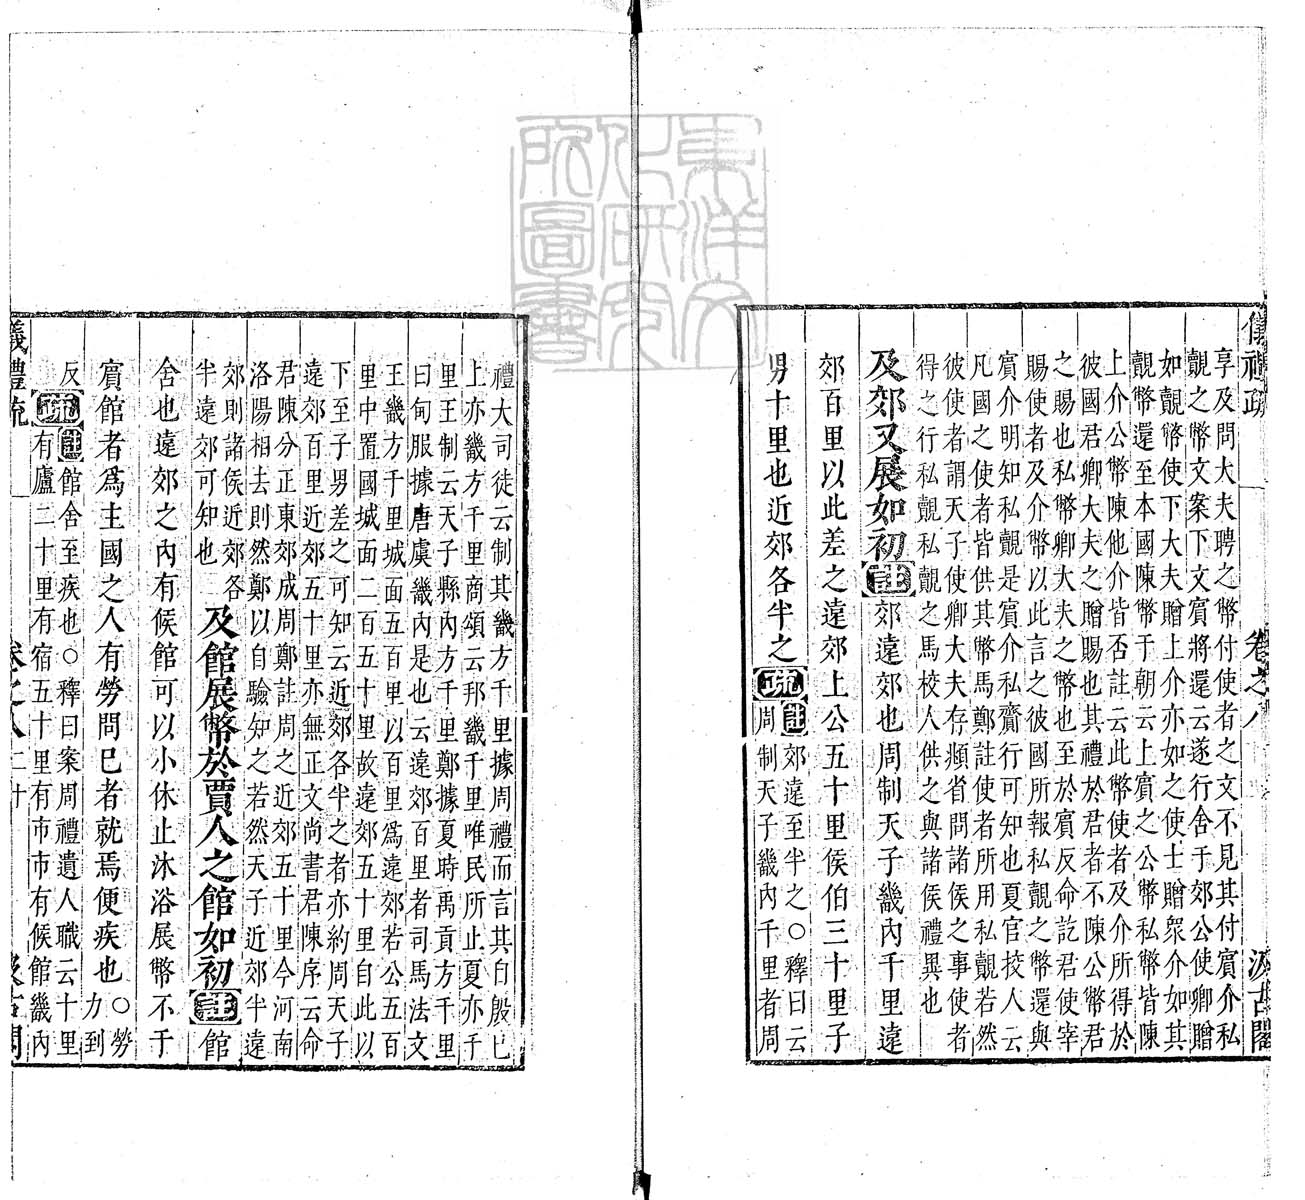 儀禮疏 卷之八 汲古閣
享及問大夫聘之幣付使者之文不見其付賓介私
覿之幣文案下文賓將還云遂行舍于郊公使卿贈
如覿幣使下大夫贈上介亦如之使士贈眾介如其
覿幣還至本國陳幣于朝云上賓之公幣私幣皆陳
上介公幣陳他介皆否註云此幣使者及介所得於
彼國君卿大夫之贈賜也其禮於君者不陳公幣君
之賜也私幣卿大夫之幣也至於賓反命訖君使宰
賜使者及介幣以此言之彼國所報私覿之幣還與
賓介明知私覿是賓介私齎行可知也夏官校人云
凡國之使者皆供其幣馬鄭註使者所用私覿若然
彼使者謂天子使卿大夫存頫省問諸侯之事使者
得之行私覿私覿之馬校人供之與諸侯禮異也
及郊又展如初註郊遠郊也周制天子畿內千里遠
郊百里以此差之遠郊上公五十里侯伯三十里子
男十里也近郊各半之疏註郊遠至半之○釋曰云
周制天子畿內千里者周
禮大司徒云制其畿方千里據周禮而言其自殷已
上亦畿方千里商頌云邦畿千里唯民所止夏亦千
里王制云天子縣內方千里鄭據夏時禹貢方千里
曰甸服據唐虞畿內是也云遠郊百里者司馬法文
王畿方千里城面五百里以百里爲遠郊若公五百
里中置國城面二百五十里故遠郊五十里自此以
下至子男差之可知云近郊各半之者亦約周天子
遠郊百里近郊五十里亦無正文尚書君陳序云命
君陳分正東郊成周鄭註周之近郊五十里今河南
洛陽相去則然鄭以自驗知之若然天子近郊半遠
郊則諸侯近郊各
半遠郊可知也
及館展幣於賈人之館如初註館
舍也遠郊之內有候館可以小休止沐浴展幣不于
賓館者爲主國之人有勞問已者就焉便疾也○勞
力到
反疏註館舍至疾也○釋曰案周禮遺人職云十里
有廬二十里有宿五十里有市市有候館畿內
儀禮疏 卷之八 二十 汲古閣
東洋文化研究所圖書